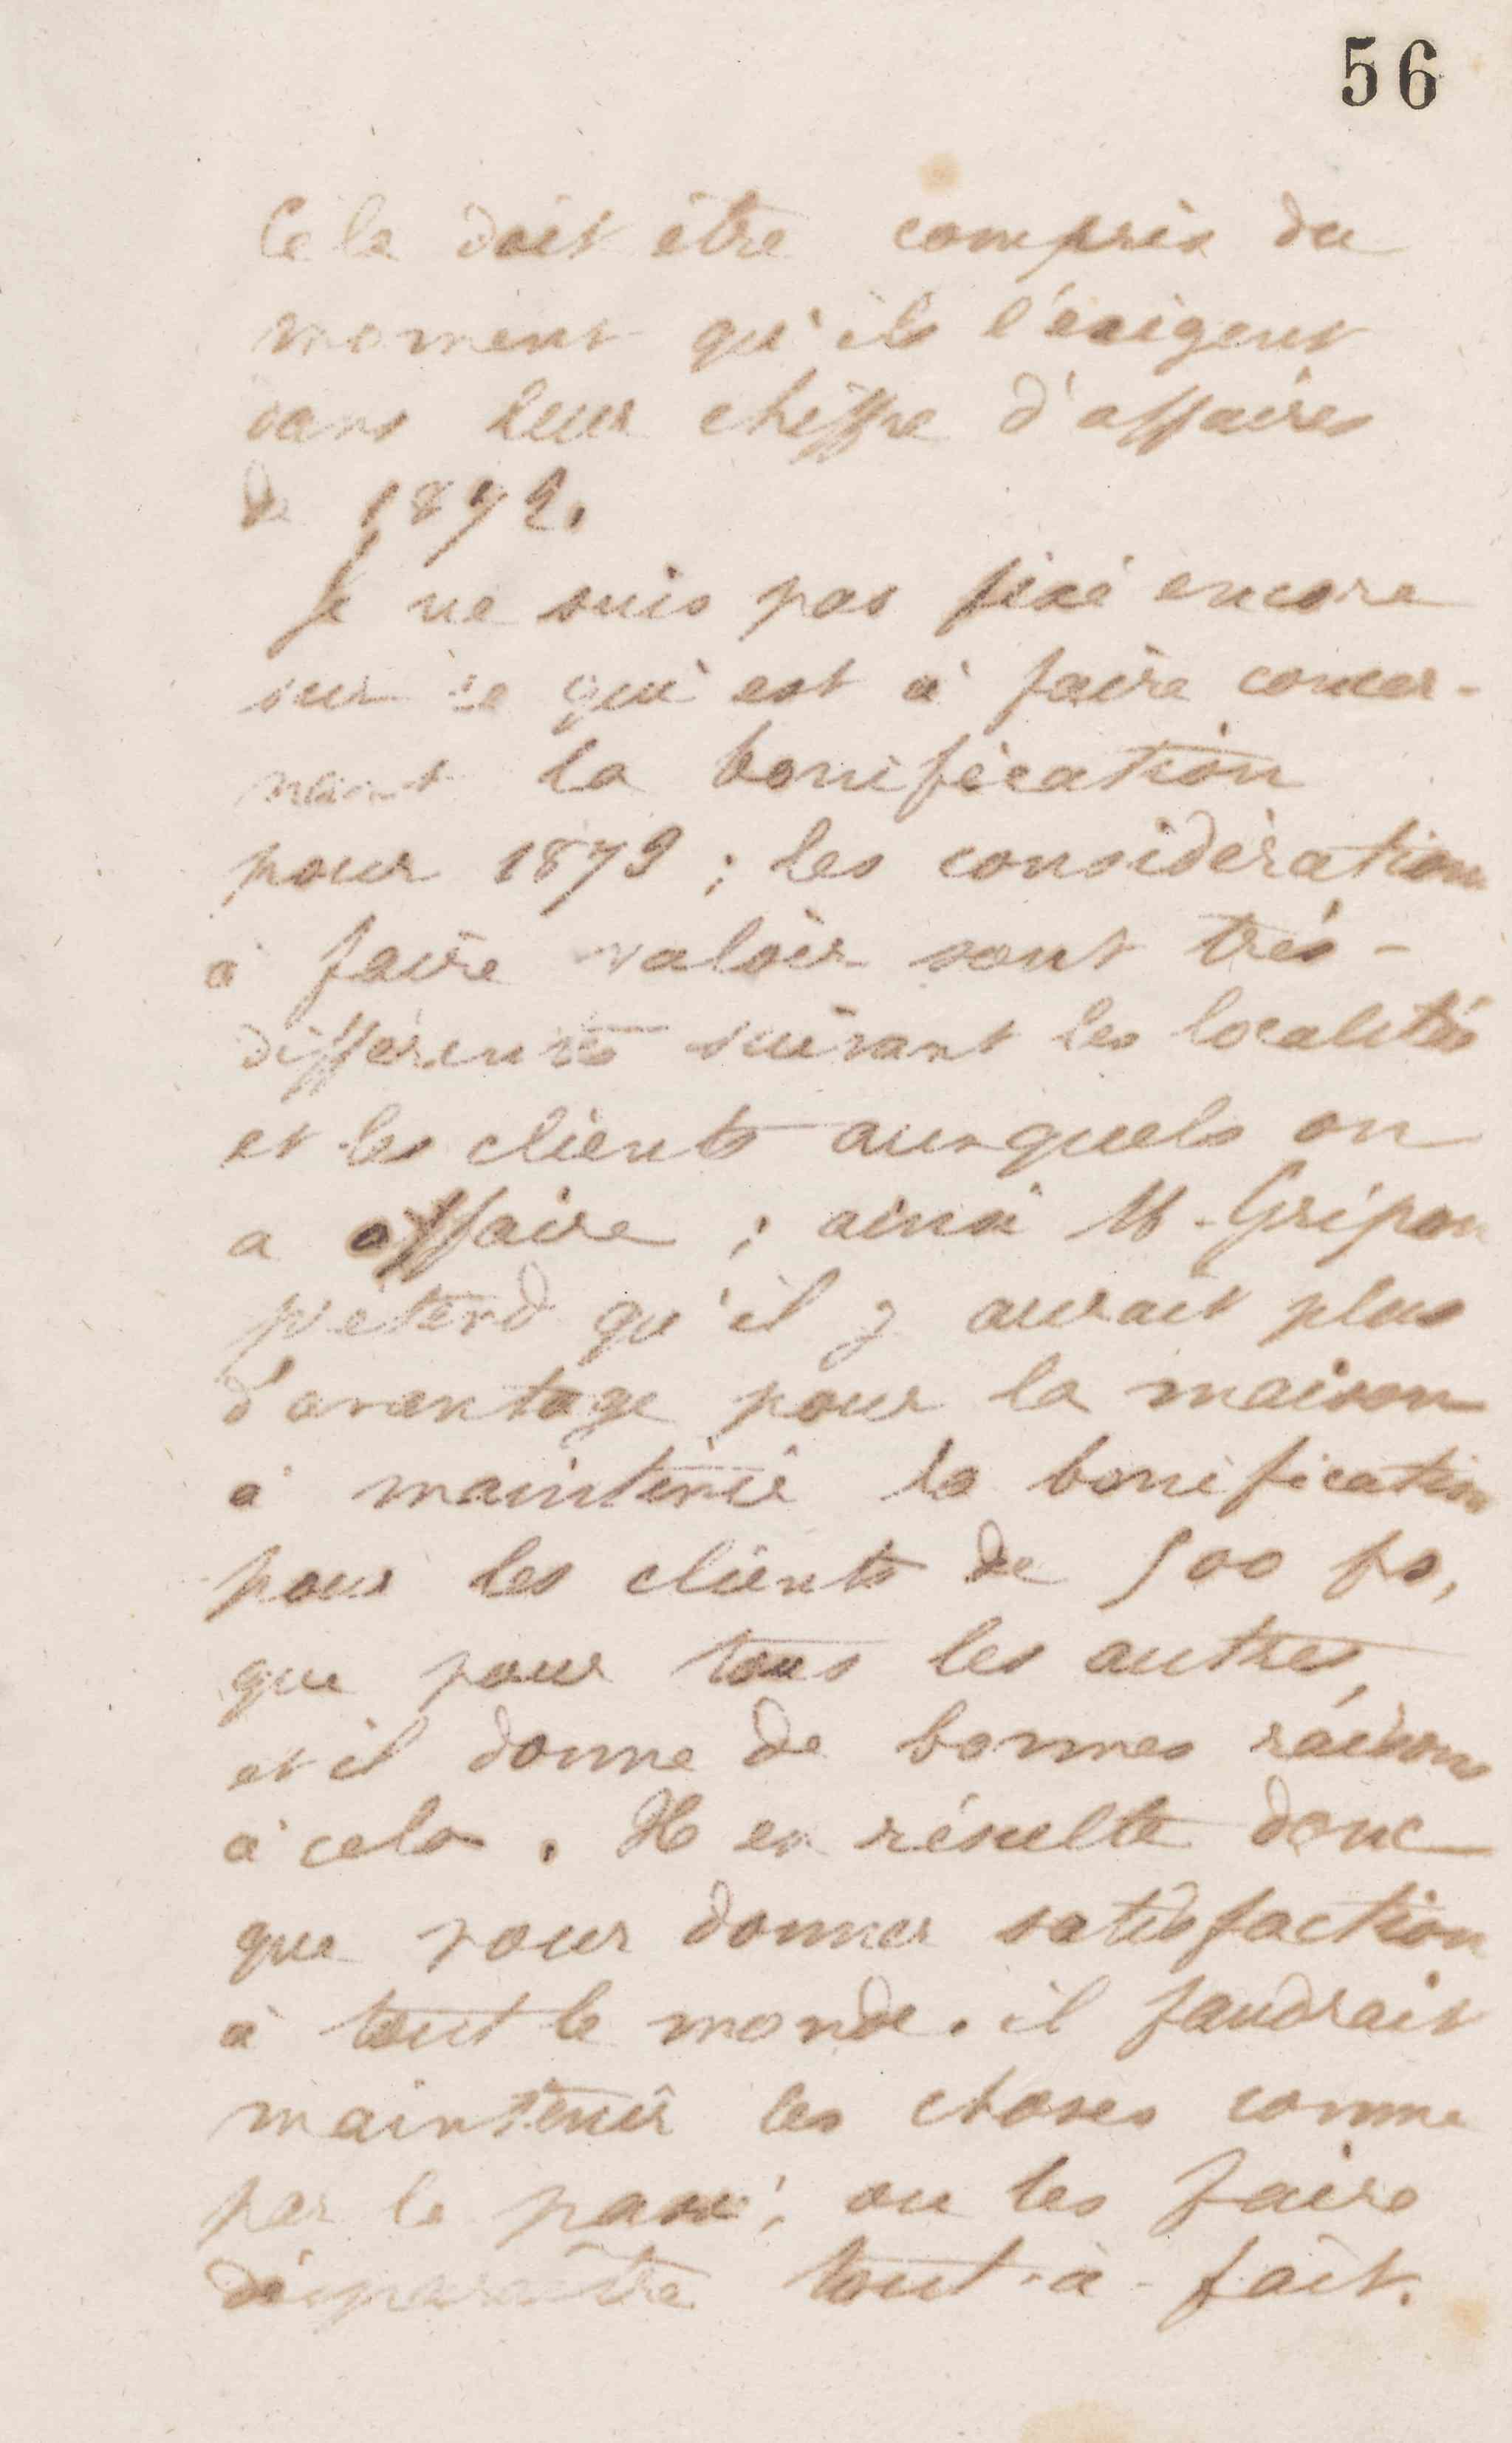 56
Cela doit être compris du
moment qu'ils l'exigent
dans leur chiffre d'affaires
de 1872.
Je ne suis pas fixé encore
sur ce qui est à faire concer-
nant la bonification
pour 1873 ; les considérations
à faire valoir sont très-
différentes suivant les localités
et les clients auxquels on
a affaire ; ainsi M. Gripon
prétend qu'il y aurait plus
d'avantage pour la maison
à maintenir la bonification
pour les clients de 500 fs,
que pour tous les autres,
et il donne de bonnes raisons
à cela. Il en résulte donc
que pour donner satisfaction
à tout le monde. il faudrait
maintenir les choses comme
par le passé, ou les faire
disparaître tout-à-fait.